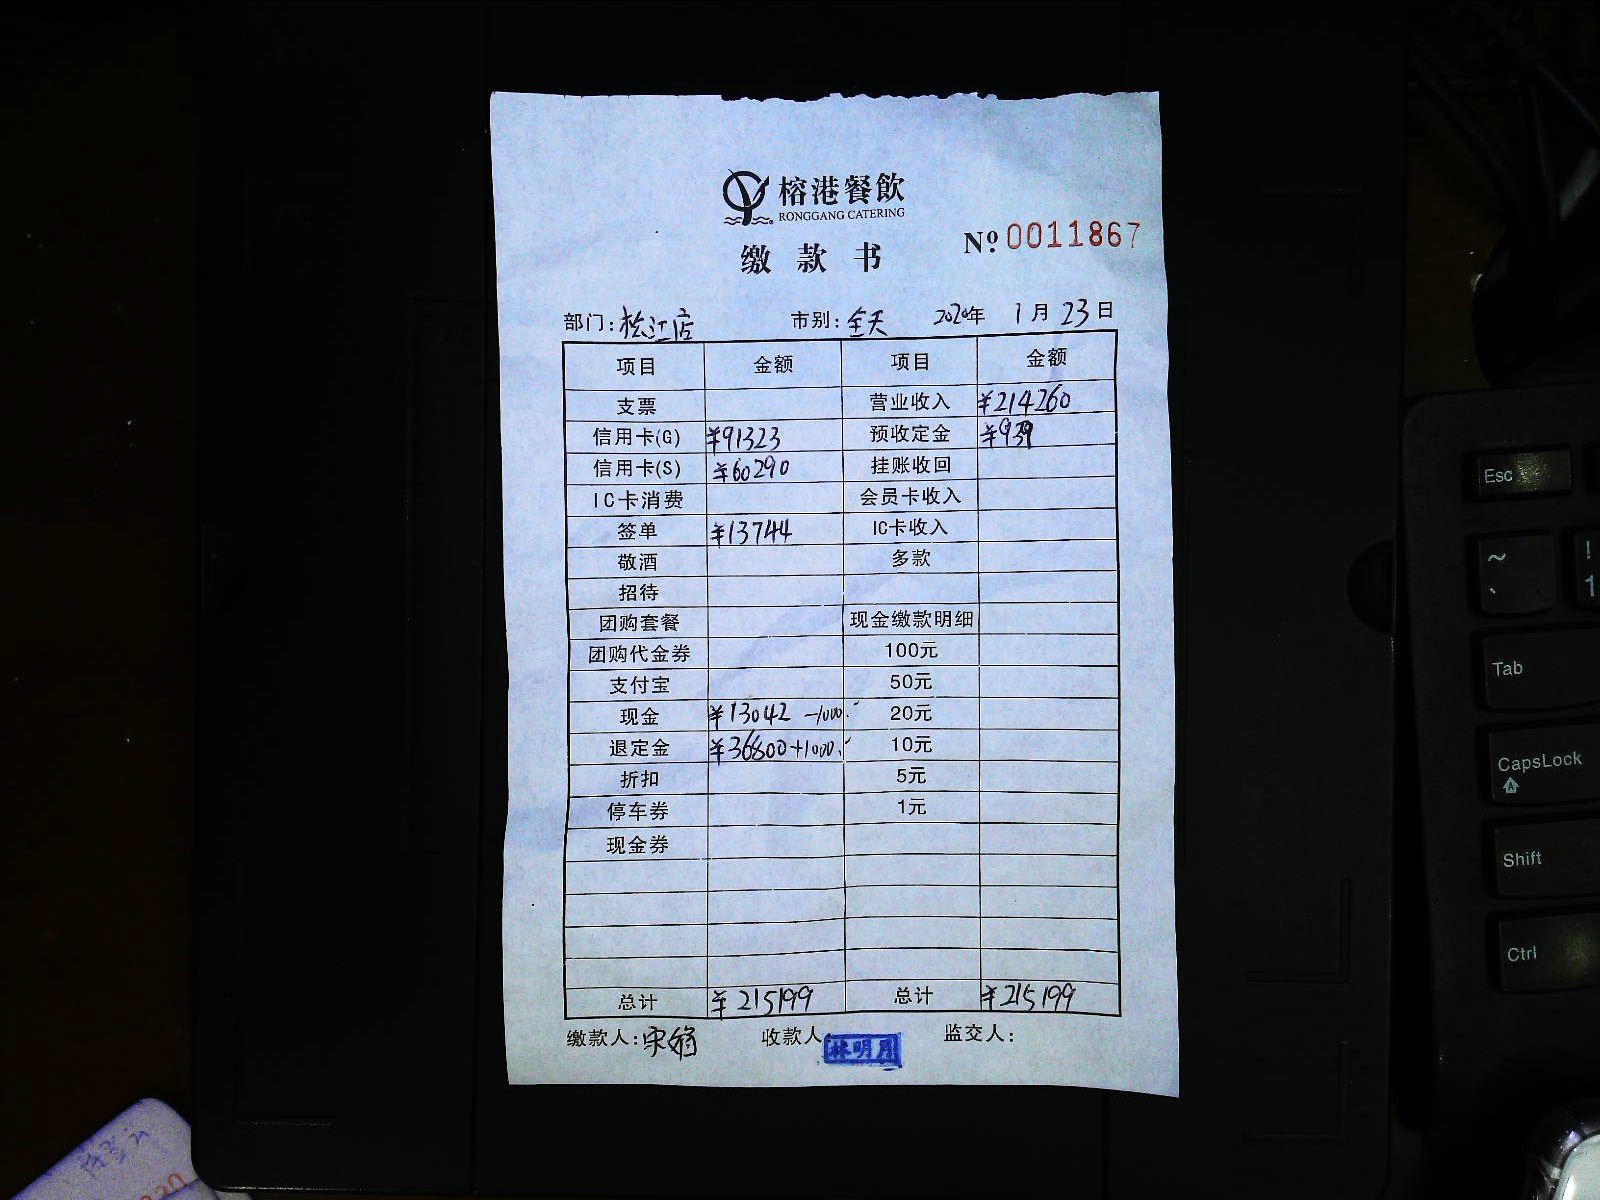 榕港餐飲
RONGGANG CATERING
缴款书
Nº 0011867
部门：松江店 市别：全天 2020年 1月 23日
项目 金额 项目 金额
支票 营业收入 ¥214260
信用卡(G) ¥91323 预收定金 ¥939
信用卡(S) ¥60290 挂账收回
IC卡消费 会员卡收入
签单 ¥13744 IC卡收入
敬酒 多款
招待
团购套餐 现金缴款明细
团购代金券 100元
支付宝 50元
现金 ¥13042 -1000. 20元
退定金 ¥36800+1000. 10元
折扣 5元
停车券 1元
现金券
总计 ¥215199 总计 ¥215199
缴款人：宋 收款人 林明月 监交人：
Esc
~ !
` 1
Tab
CapsLock
Shift
Ctrl